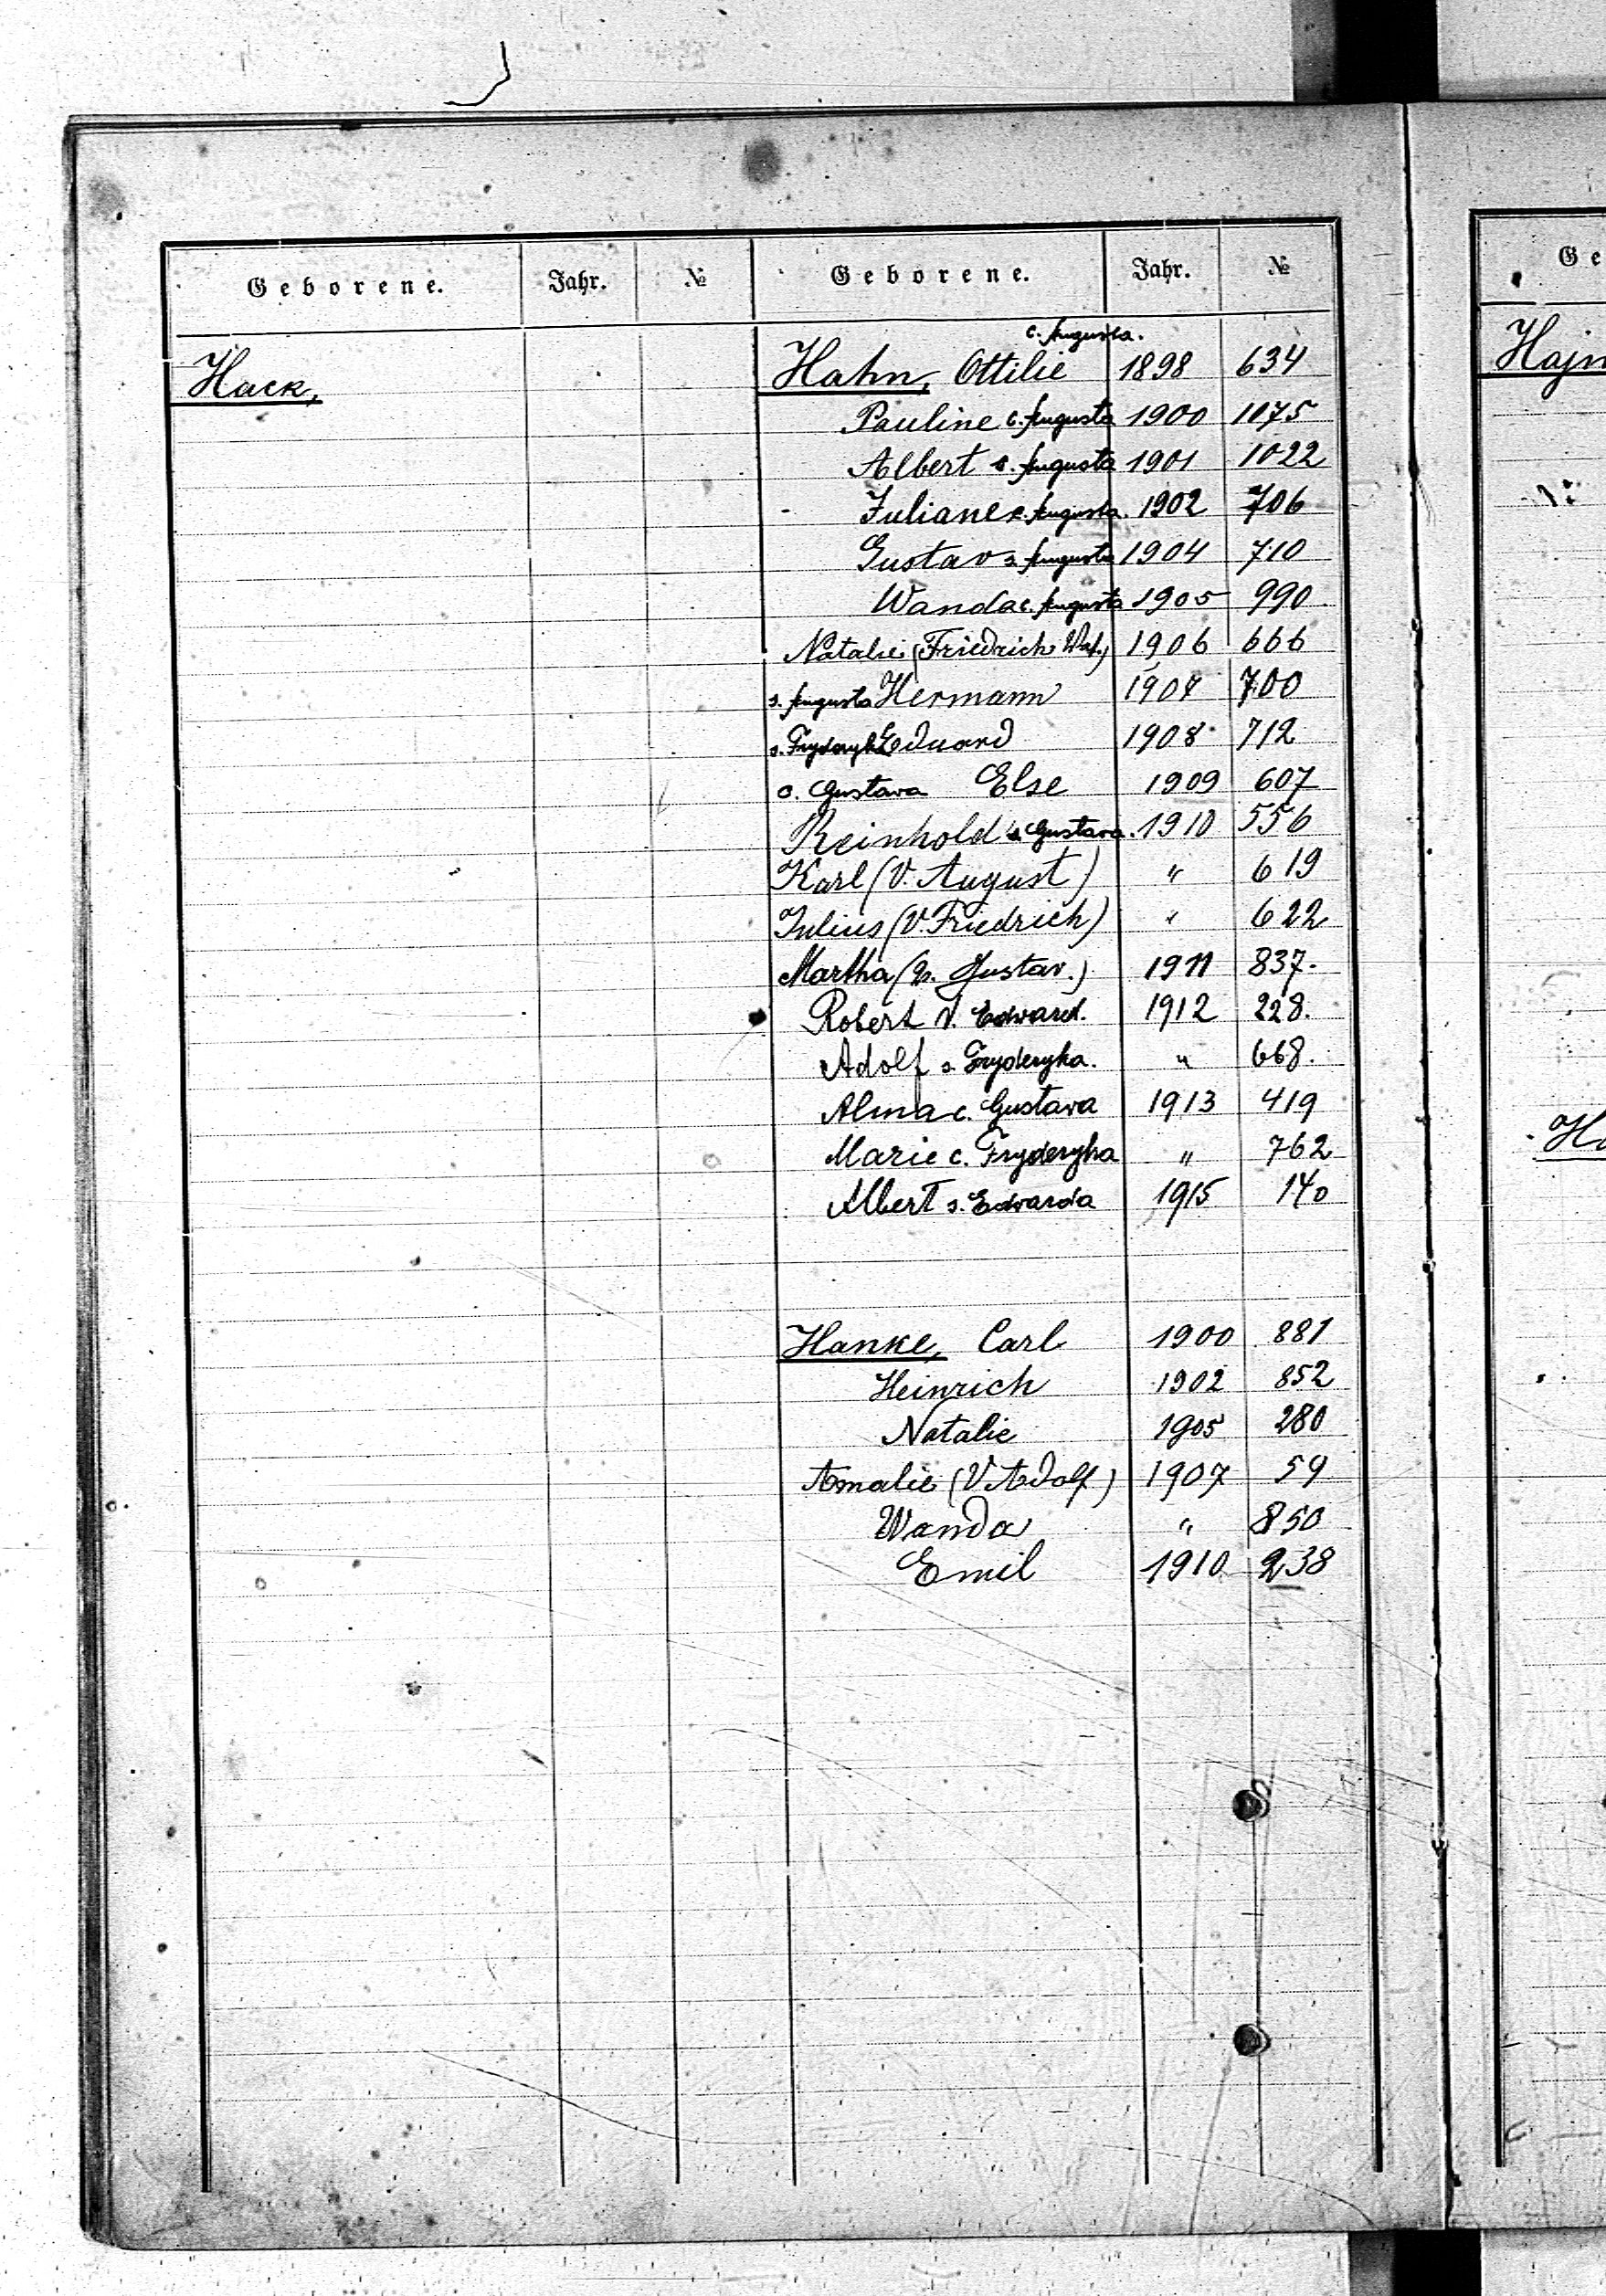 Geborene. Jahr. № Geborene. Jahr. №
Ge
Hack,
c. Augusta.
Hahn, Ottilie 1898 634
Pauline c. Augusta 1900 1075
Albert s. Augusta 1901 1022
Juliane c. Augusta. 1902 706
Gustav s. Augusta 1904 710
Wanda c. Augusta 1905 990
Natalie (Friedrich 1906 666
s. Augusta Hermann 1907 700
s. Fryderyka Eduard 1908 712
c. Gustava Else 1909 607
Reinhold s. Gustava. 1910 556
Karl (V. August) " 619
Julius (V. Friedrich) " 622
Martha (V. Gustav.) 1911 837.
Robert V. Edward. 1912 228.
Adolf s. Fryderyka. " 668.
Alma c. Gustava 1913 419
Marie c. Fryderyka " 762
Albert s. Edwarda 1915 140
Hanke, Carl 1900 881
Heinrich 1902 852
Natalie 1905 280
Amalie (V. Adolf) 1907 59
Wanda " 850
Emil 1910 238
Hajn